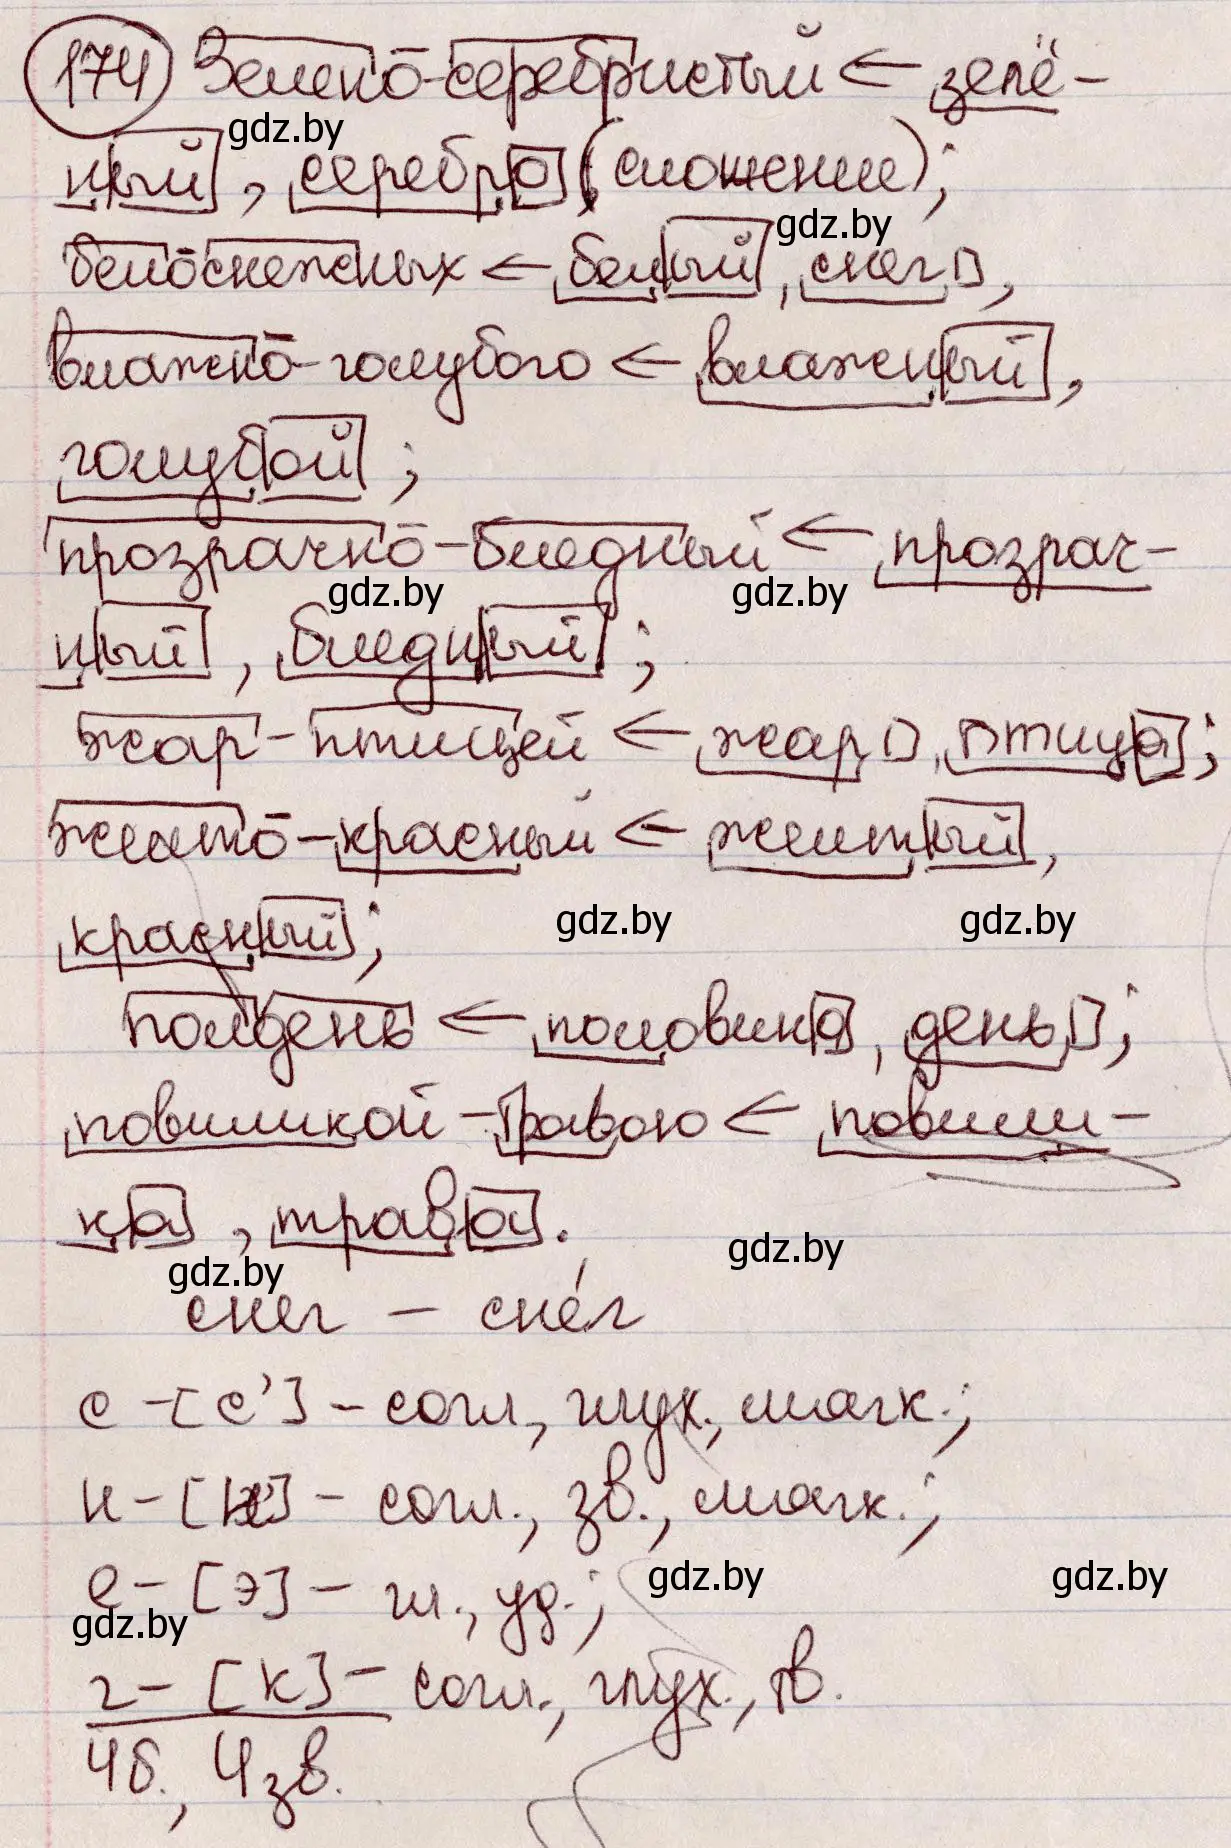 174 Зелено-серебристый ← зелё-
gdz.by
ный, серебро (сложение);
gdz.by
белоснежных ← белый, снег,
влажно-голубого ← влажный,
голубой;
прозрачно-бледный ← прозрач-
gdz.by gdz.by
ный, бледный;
жар-птицей ← жар, птица;
желто-красный ← желтый,
gdz.by gdz.by
красный;
полдень ← половина, день;
повиликой-травою ← повили-
ка, трава.
gdz.by gdz.by
снег – сне́г
с – [с'] – согл., глух., мягк.;
н – [н'] – согл., зв., мягк.;
е – [э] – гл., уд.;
gdz.by gdz.by
gdz.by
г – [к] – согл., глух., тв.
4 б., 4 зв.